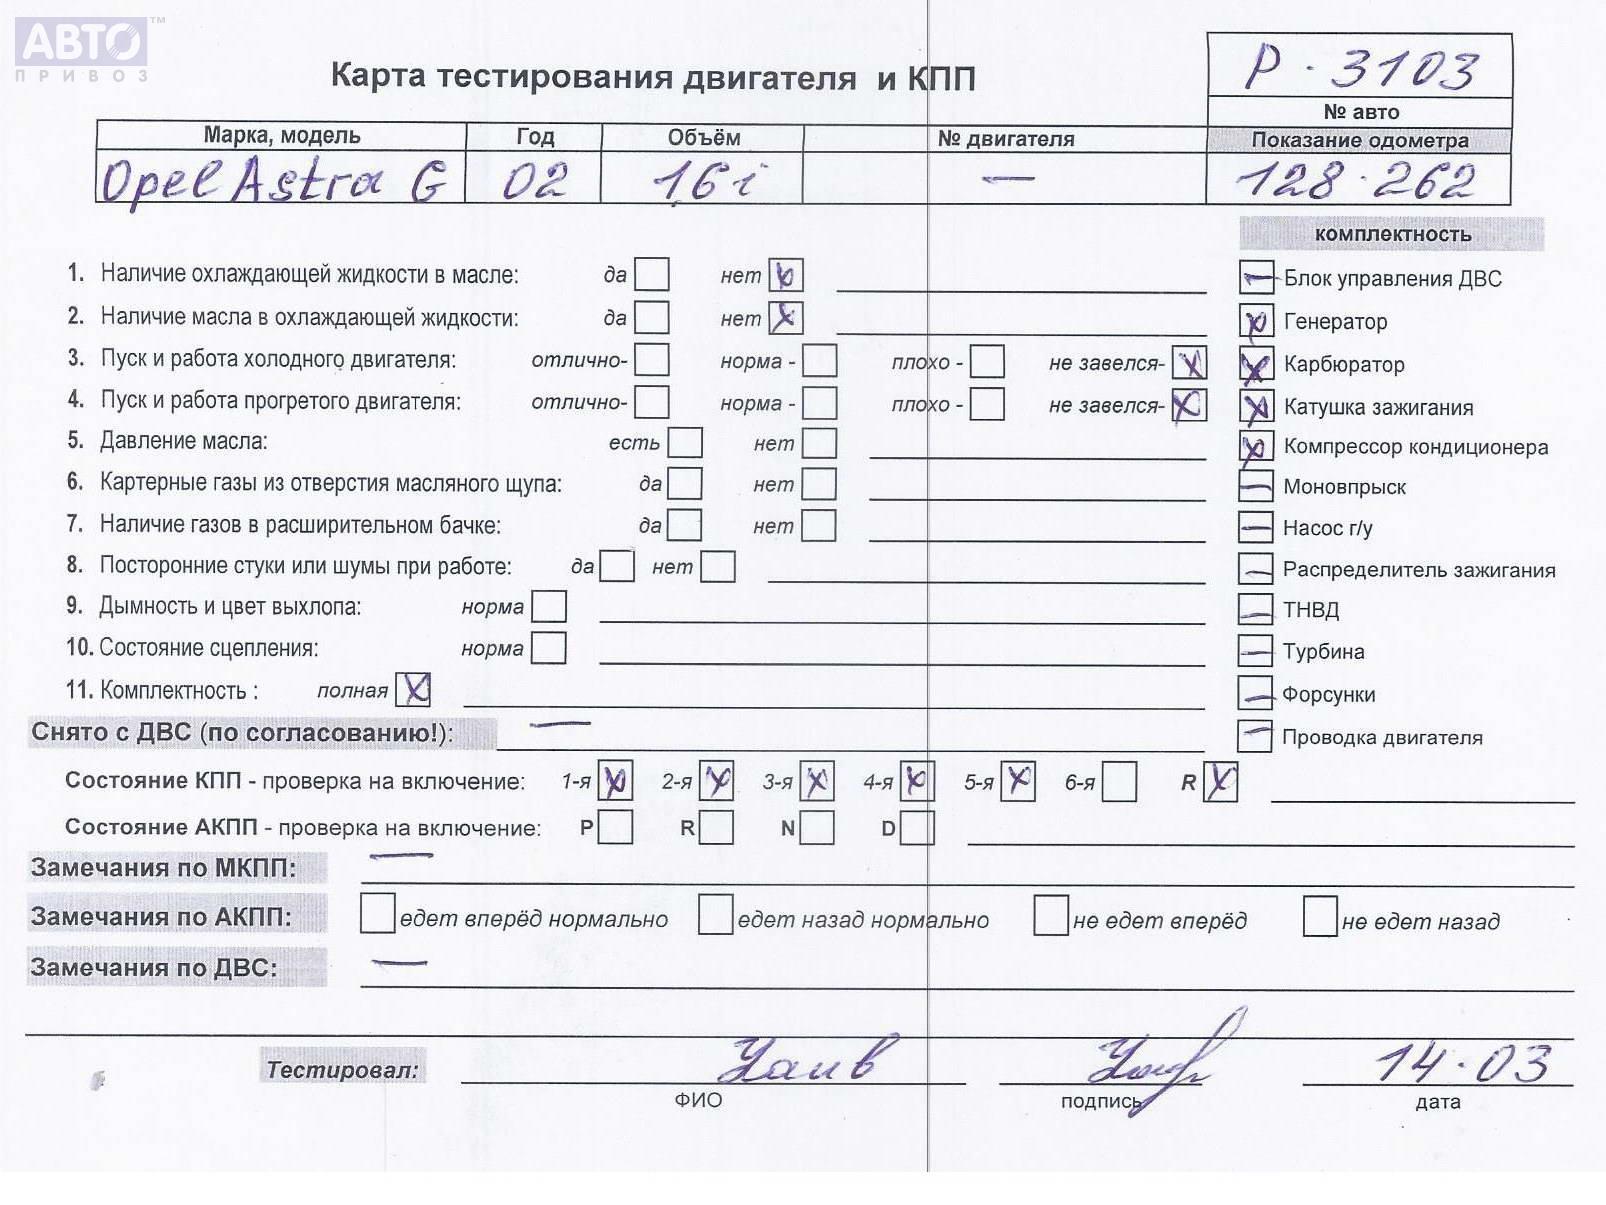 АВТО™
ПРИВОЗ
Карта тестирования двигателя и КПП
Р · 3103
№ авто
Марка, модель Год Объём № двигателя Показание одометра
Opel Astra G 02 16 i — 128 · 262
комплектность
1. Наличие охлаждающей жидкости в масле: да нет Х
— Блок управления ДВС
2. Наличие масла в охлаждающей жидкости: да нет Х
Х Генератор
3. Пуск и работа холодного двигателя: отлично- норма - плохо - не завелся- Х
Х Карбюратор
4. Пуск и работа прогретого двигателя: отлично- норма - плохо - не завелся- Х
Х Катушка зажигания
5. Давление масла: есть нет
Х Компрессор кондиционера
6. Картерные газы из отверстия масляного щупа: да нет
— Моновпрыск
7. Наличие газов в расширительном бачке: да нет
— Насос г/у
8. Посторонние стуки или шумы при работе: да нет
— Распределитель зажигания
9. Дымность и цвет выхлопа: норма
— ТНВД
10. Состояние сцепления: норма
— Турбина
11. Комплектность : полная Х
— Форсунки
Снято с ДВС (по согласованию!): —
— Проводка двигателя
Состояние КПП - проверка на включение: 1-я Х 2-я Х 3-я Х 4-я Х 5-я Х 6-я R Х
Состояние АКПП - проверка на включение: P R N D
Замечания по МКПП: —
Замечания по АКПП: едет вперёд нормально едет назад нормально не едет вперёд не едет назад
Замечания по ДВС: —
Тестировал: 14 · 03
ФИО подпись дата